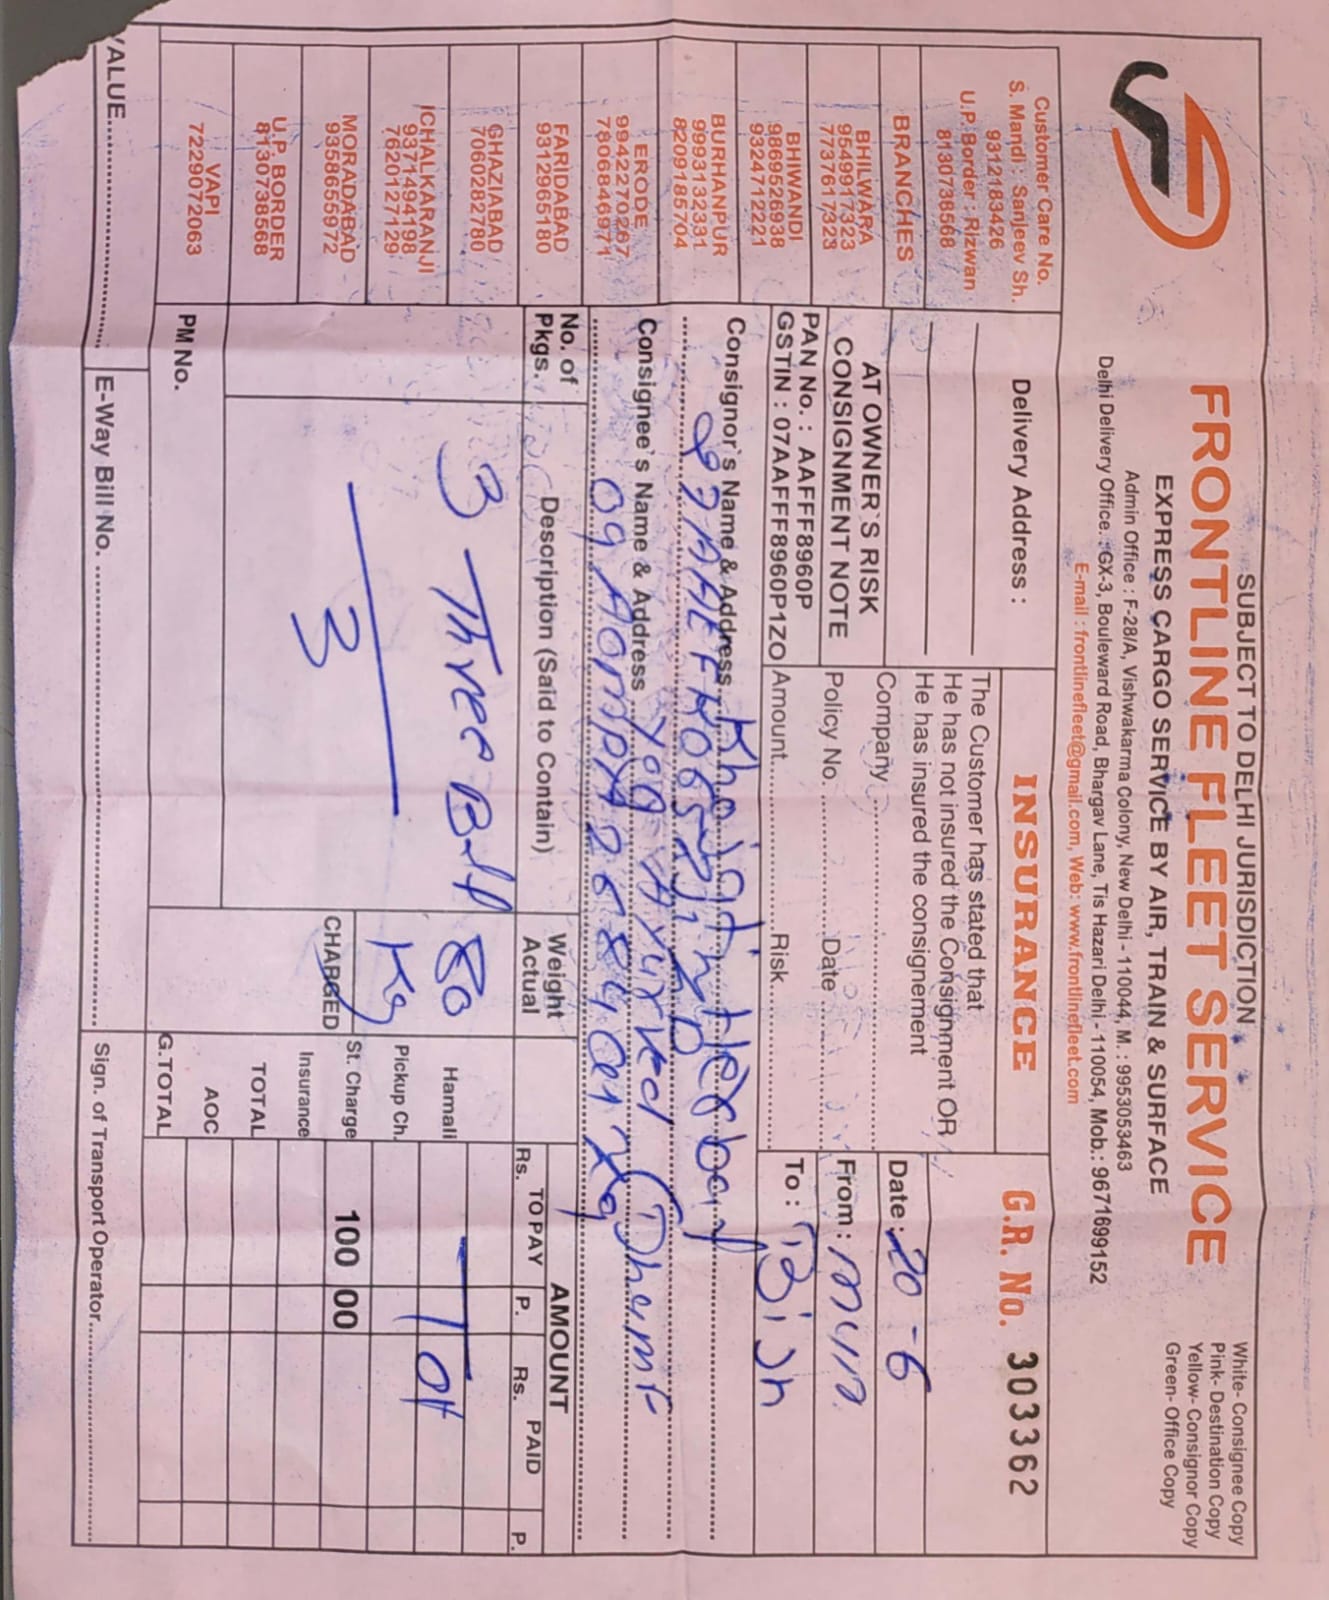 SUBJECT TO DELHI JURISDICTION
FRONTLINE FLEET SERVICE
EXPRESS CARGO SERVICE BY AIR, TRAIN & SURFACE
Admin Office : F-28/A, Vishwakarma Colony, New Delhi - 110044, M. : 9953053463
Delhi Delivery Office. : GX-3, Bouleward Road, Bhargav Lane, Tis Hazari Delhi - 110054, Mob.: 9671699152
E-mail : frontlinefleet@gmail.com, Web: www.frontlinefleet.com
White- Consignee Copy
Pink- Destination Copy
Yellow- Consignor Copy
Green- Office Copy
Customer Care No.
S. Mandi : Sanjeev Sh.
9312183426
U.P. Border : Rizwan
8130738568
BRANCHES
BHILWARA
9549917323
7737617323
BHIWANDI
9869526938
9324712221
BURHANPUR
9993132331
8209185704
ERODE
9942270267
7806846971
FARIDABAD
9312965180
GHAZIABAD
7060282780
ICHALKARANJI
9371494198
7620127129
MORADABAD
9358655972
U.P.BORDER
8130738568
VAPI
7229072063
Delivery Address :
AT OWNER`S RISK
CONSIGNMENT NOTE
PAN No. : AAFFF8960P
GSTIN : 07AAFFF8960P1ZO
INSURANCE
The Customer has stated that
He has not insured the Consignment OR
He has insured the consignement
Company
Policy No. Date
Amount Risk
G.R. No. 303362
Date : 20-6
From : mun
To :
Consignor`s Name & Address
Consignee`s Name & Address
No. of Pkgs.
Description (Said to Contain)
Weight Actual
AMOUNT
TO PAY PAID
Rs. P. Rs. P.
3 Three
3
80
Kg
CHARGED
Hamali
Pickup Ch.
St. Charge 100 00
Insurance
TOTAL
AOC
G.TOTAL
PM No.
VALUE
E-Way Bill No.
Sign. of Transport Operator